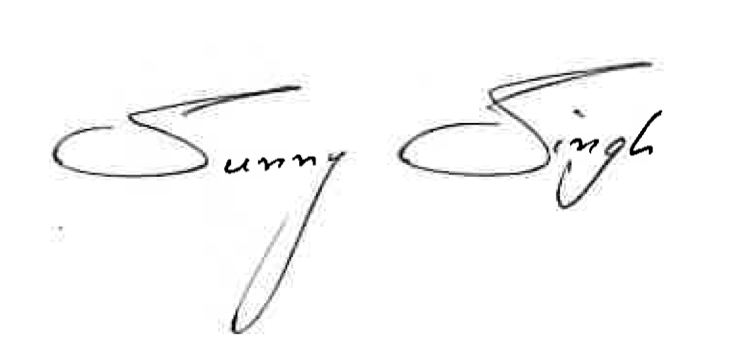 Sunny Singh